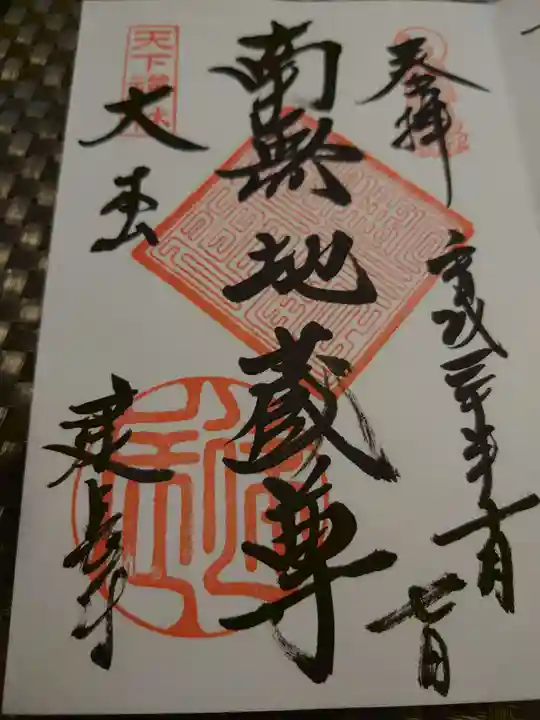 奉拝
平成三十年十月七日
南無地蔵尊
天下禅林
大本山
建長寺